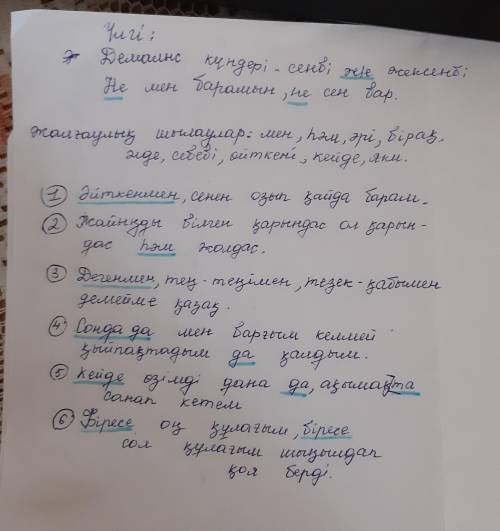 Үлгі:
Демалыс күндері - сенбі же жексенбі
Не мен барамын, не сен бар.
Жалғаулық шылаулар: мен, һәм, әрі, бірақ,
әлде, себебі, өйткені, кейде, яки.
1 Әйткенмен, сенен озып қайда барам.
2 Жайыңды білген қарындас ол қарын-
дас һәм жолдас.
3 Дегенмен, тең-теңімен, тезек-қабымен
демейме қазақ.
4 Сонда да мен барғым келмей
қыйпақтадым да қалдым.
5 Кейде өзімді дана да, ақымақ та
санап кетем
6 Біресе оң құлағым, біресе
сол құлағым шыңылдап
қоя берді.